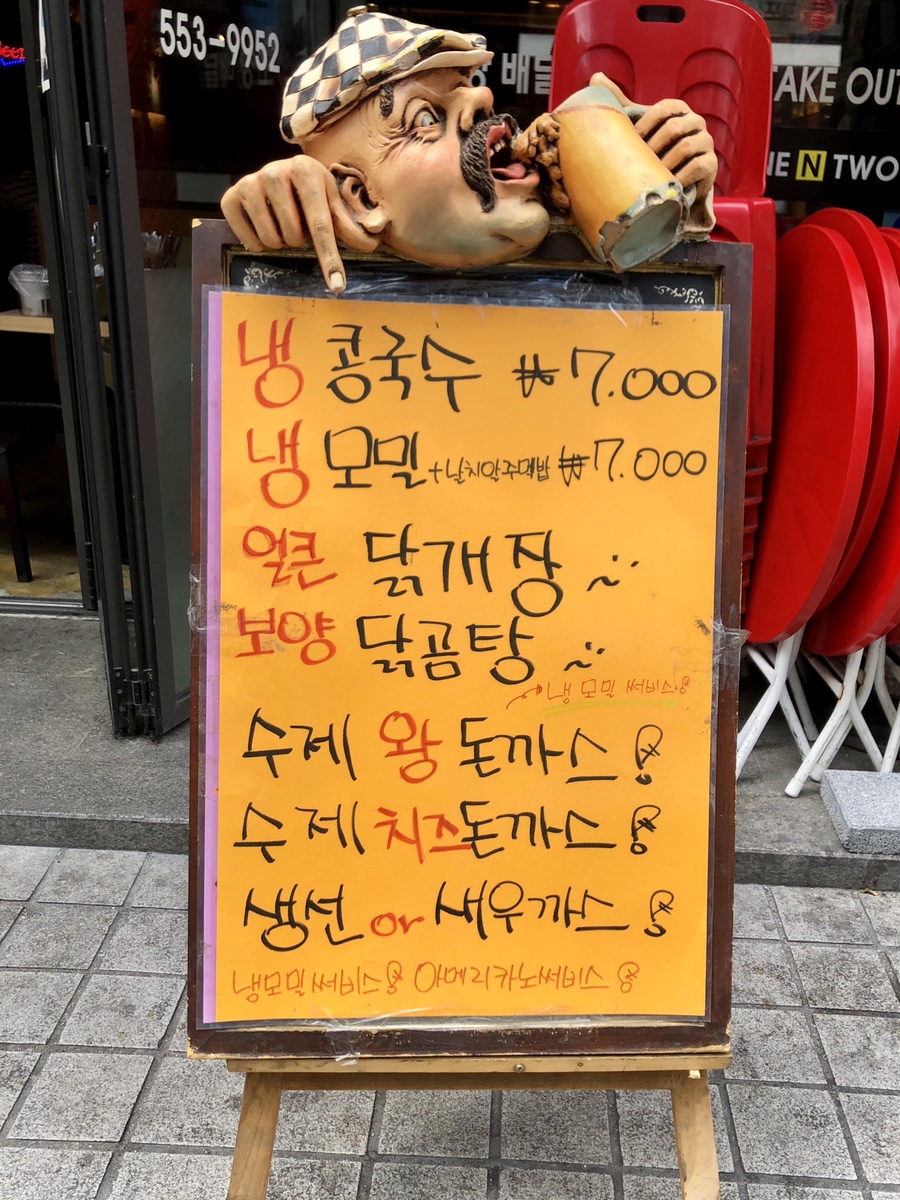 553-9952
배달
TAKE OUT
NE N TWO
냉 콩국수 ₩7.000
냉 모밀 +날치알주먹밥 ₩7.000
얼큰 닭개장
보양 닭곰탕
냉모밀 써비스
수제 왕 돈까스
수제 치즈돈까스
생선 or 새우까스
냉모밀써비스 아메리카노써비스